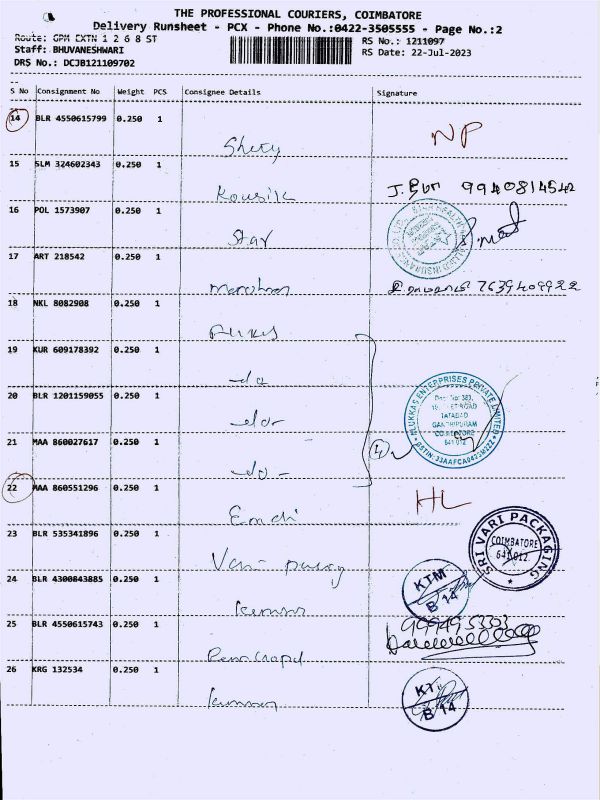 THE PROFESSIONAL COURIERS, COIMBATORE
Delivery Runsheet - PCX - Phone No.:0422-3505555 - Page No.:2
Route: GPM EXTN 1 2 6 8 ST
RS No.: 1211097
Staff: BHUVANESHWARI
RS Date: 22-Jul-2023
DRS No.: DCJB121109702
S No Consignment No Weight PCS Consignee Details Signature
14 BLR 4550615799 0.250 1
Shety NP
15 SLM 324602343 0.250 1
Kousik 9940814542
16 POL 1573907 0.250 1
Star
17 ART 218542 0.250 1
7639409922
18 NKL 8082908 0.250 1
19 KUR 609178392 0.250 1
-do
20 BLR 1201159055 0.250 1
-do-
ALUKKAS ENTERPRISES PRIVATE LIMITED
TATABAD
GANDHIPURAM
COIMBATORE
641 012
21 MAA 860027617 0.250 1
-do-
4
22 MAA 860551296 0.250 1
HL
23 BLR 535341896 0.250 1
SRI VARI PACKAGING
COIMBATORE
641 012.
24 BLR 4300843885 0.250 1
KTM
B 14
25 BLR 4550615743 0.250 1
26 KRG 132534 0.250 1
B 14